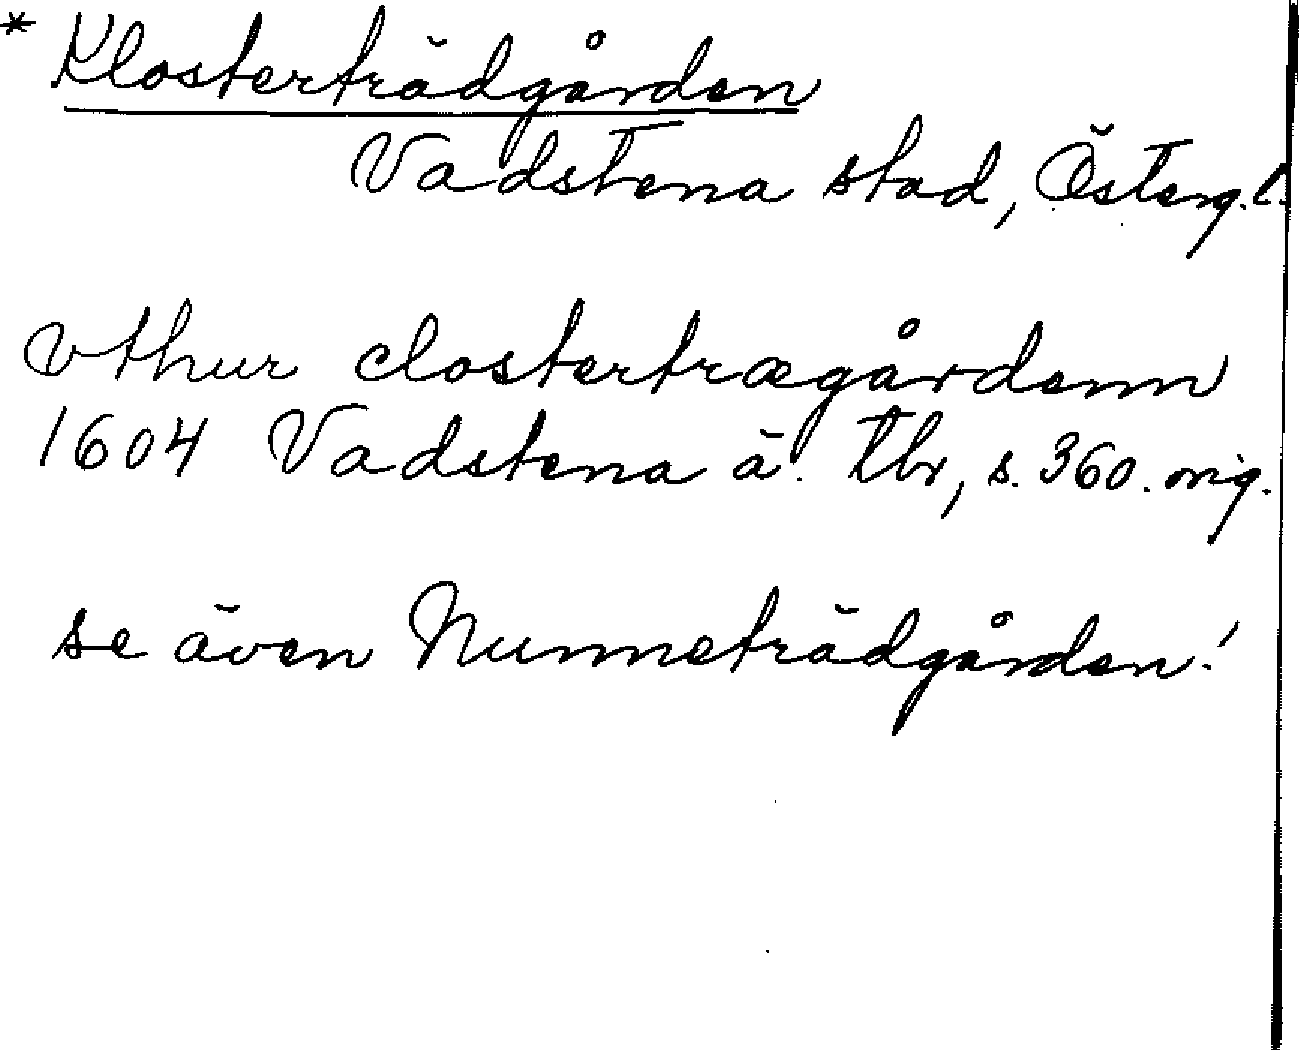 * Klosterträdgården
Vadstena stad, Österg.l.
vthur clostertrægårdenn
1604 Vadstena ä. tbr, s. 360. orig.
se även Nunneträdgården!